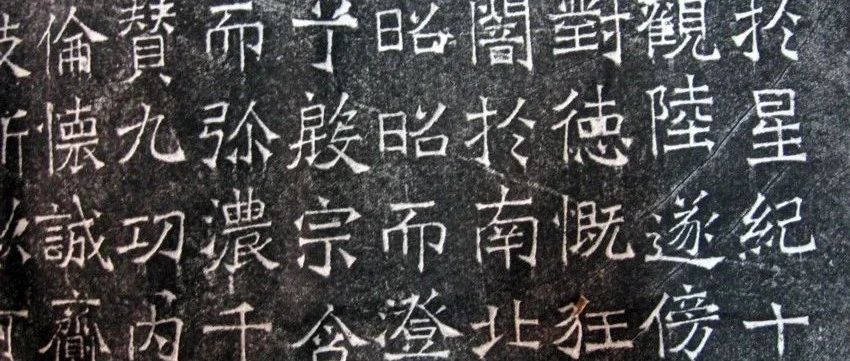 於星紀十
觀陸遂傍
對徳慨狂
闇於南北
昭昭而澄
殷宗含
而弥濃千
賛九功内
倫懷誠齊